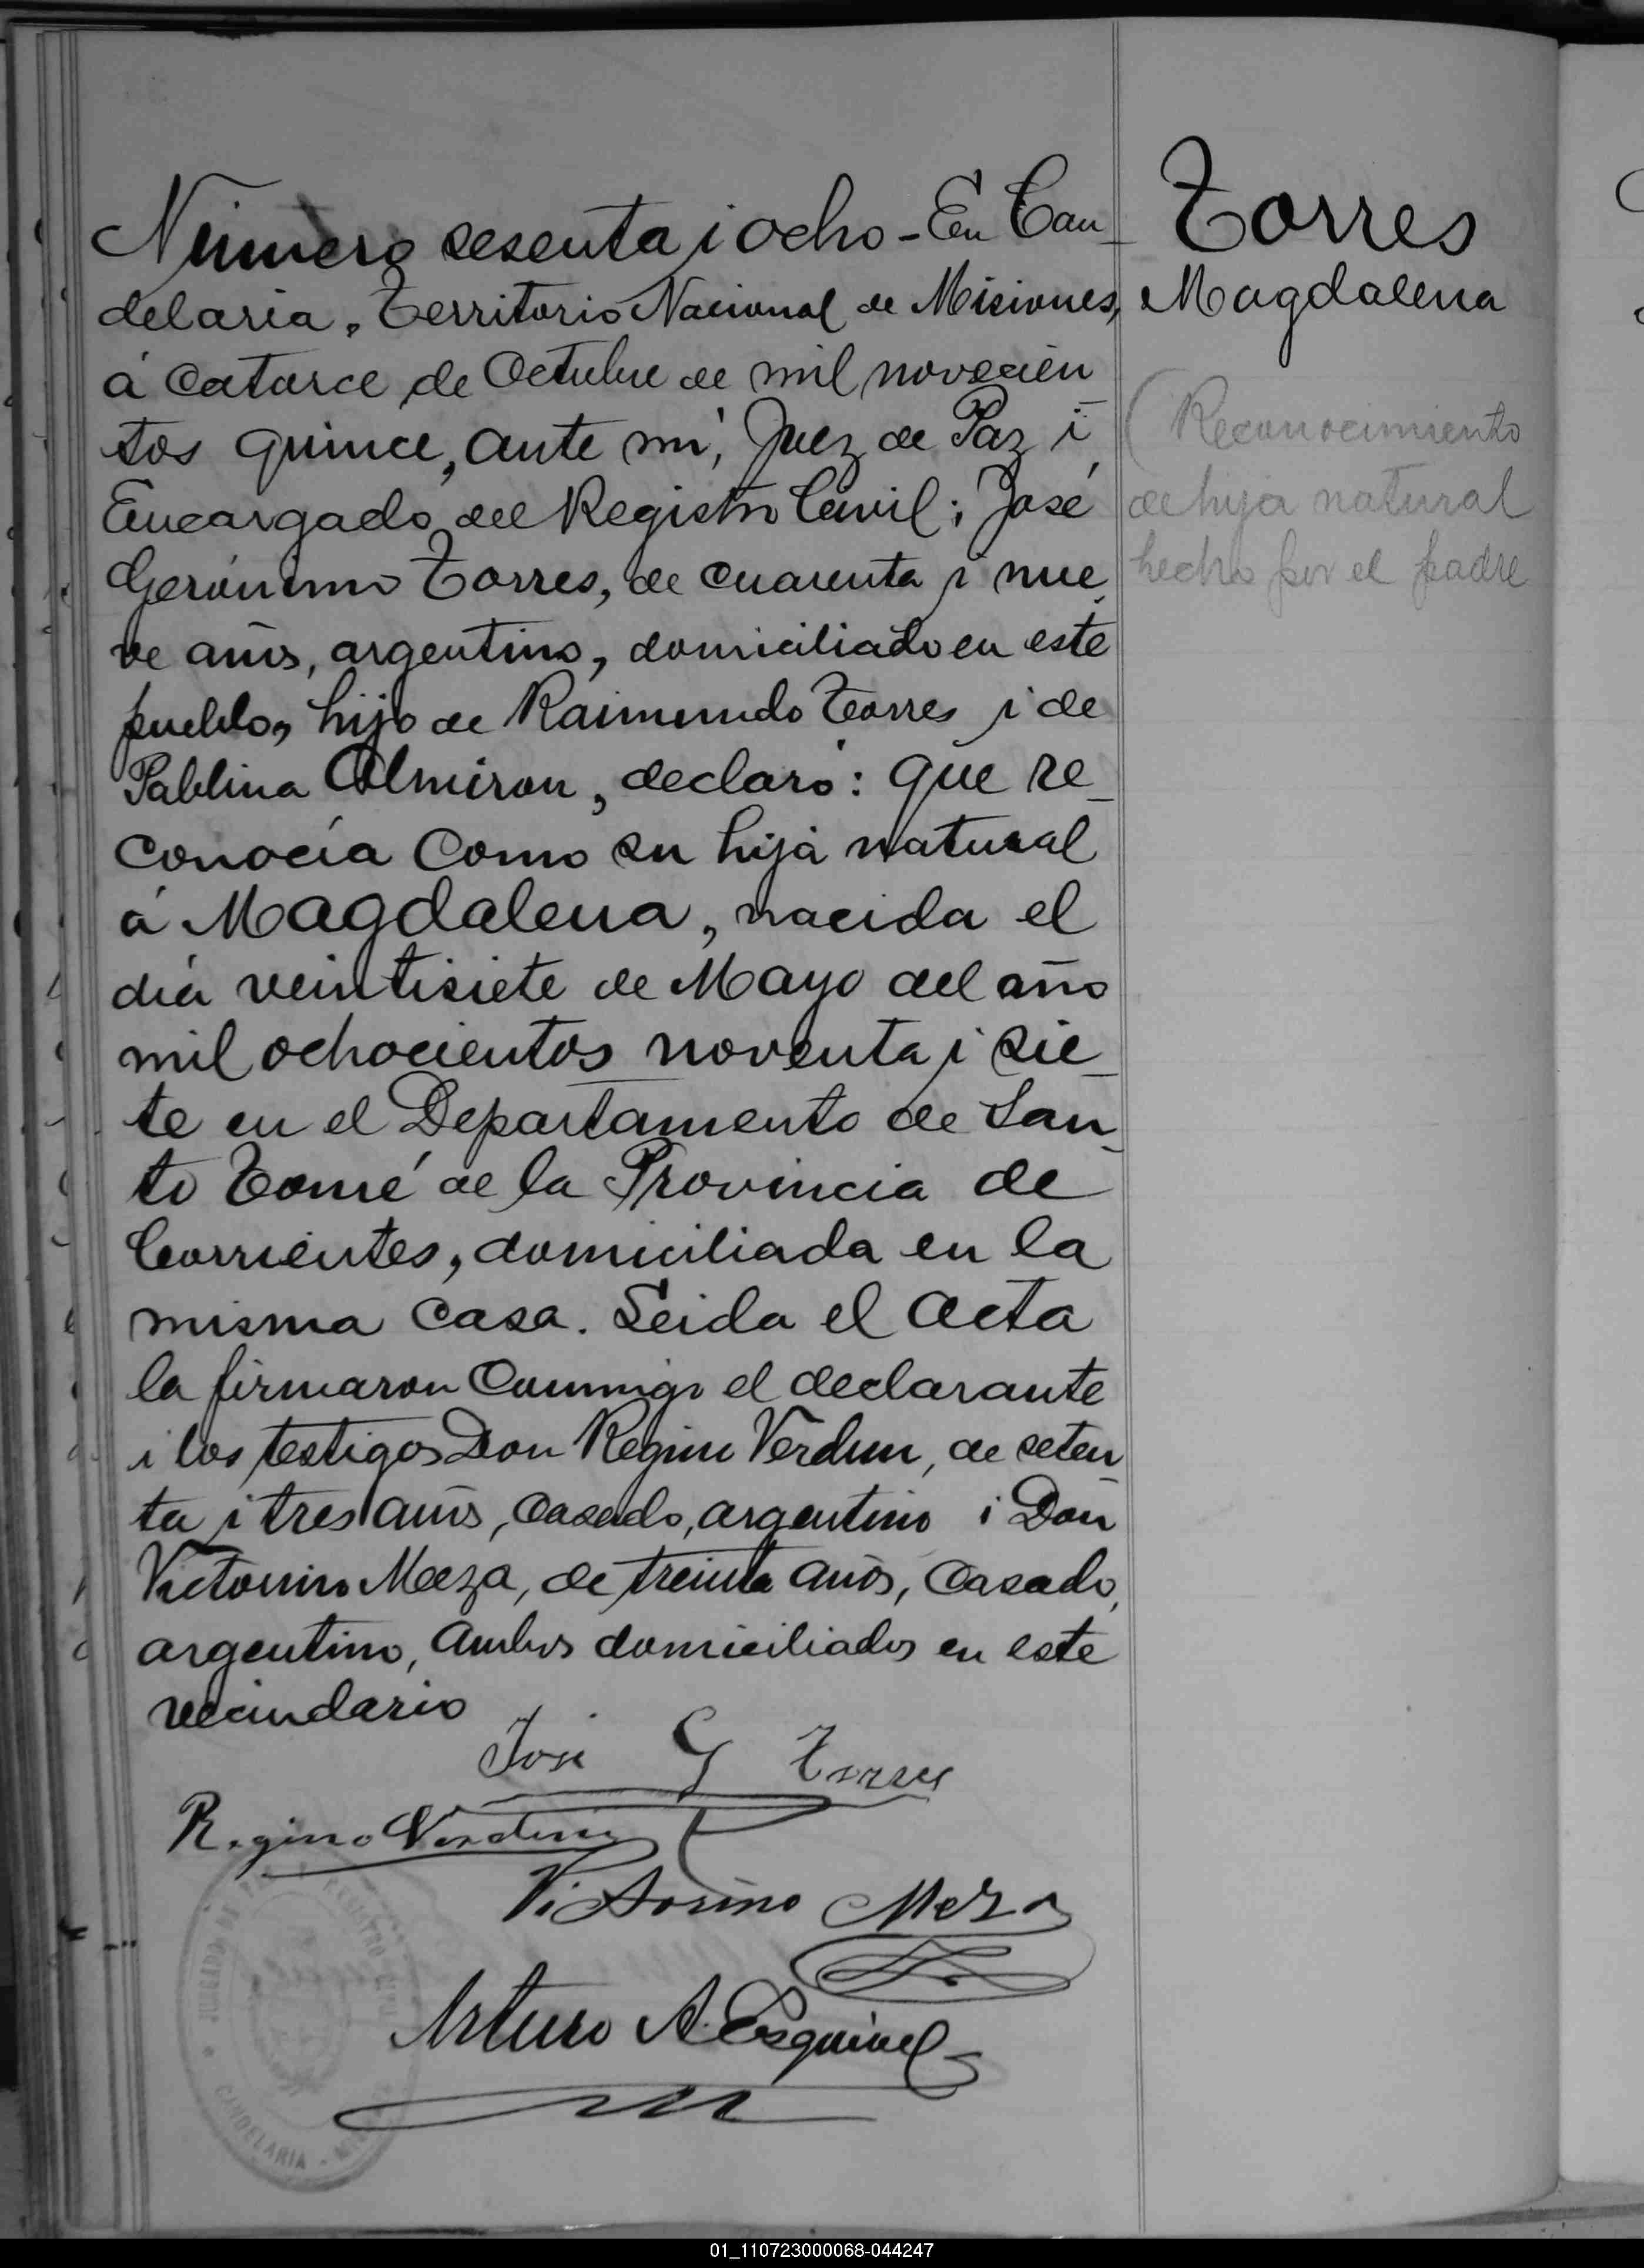 Número sesenta i ocho - En Can-
delaria, Territorio Nacional de Misiones,
á catorce de Octubre de mil novecien
tos quince, ante mí, Juez de Paz i
Encargado del Registro Civil; José
Gerónimo Torres, de cuarenta i nue
ve años, argentino, domiciliado en este
pueblo, hijo de Raimundo Torres i de
Pablina Almiron, declaró: que re-
conocía como su hija natural
á Magdalena, nacida el
día veintisiete de Mayo del año
mil ochocientos noventa i sie-
te en el Departamento de San-
to Tomé de la Provincia de
Corrientes, domiciliada en la
misma casa. Leida el acta
la firmaron conmigo el declarante
i los testigos Don Regino Verdun, de seten
ta i tres años, casado, argentino i Don
Victorino Meza, de treinta años, casado,
argentino, ambos domiciliados en este
vecindario
José G Torres
Regino Verdun
Victorino Meza
Arturo A. Esquivel
JUZGADO DE
REGISTRO CIVIL
CANDELARIA
Torres
Magdalena
(Reconocimiento
de hija natural
hecho por el padre
01_110723000068-044247